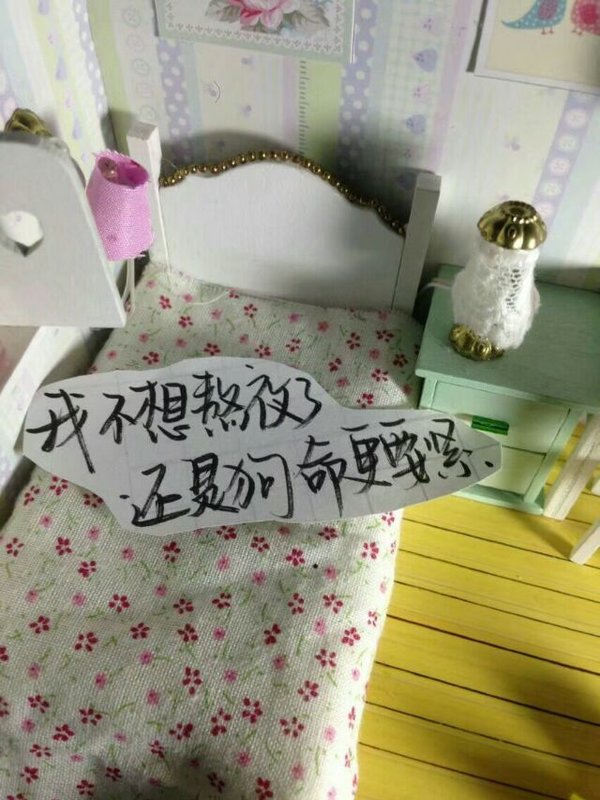 我不想熬夜了
还是狗命更要紧、